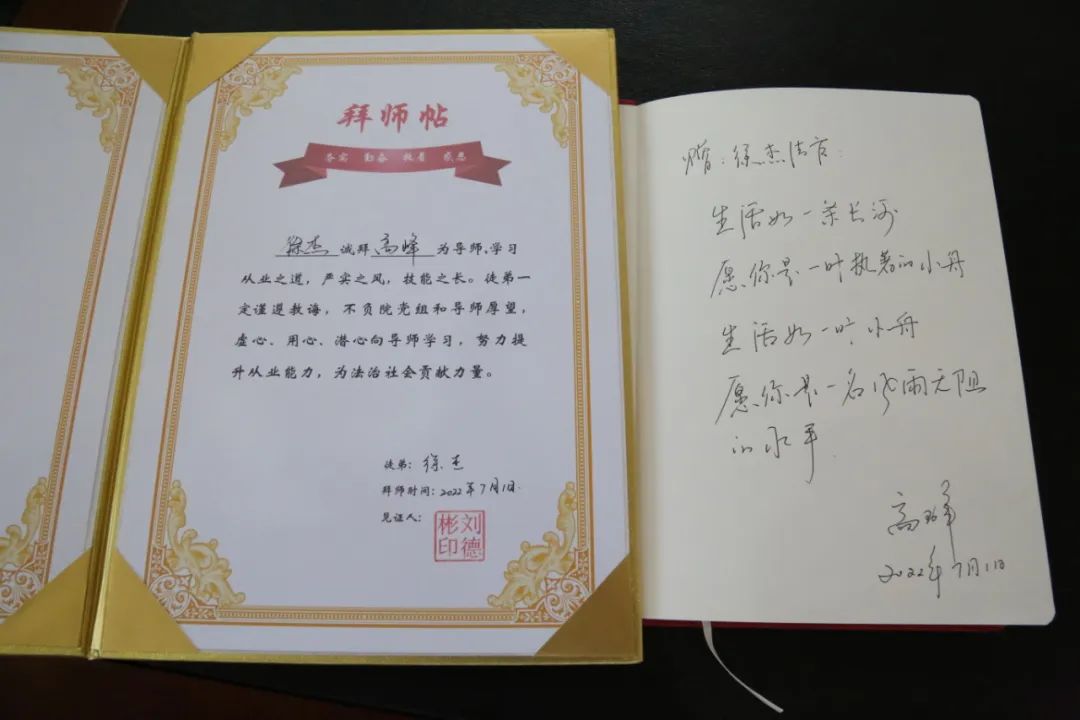 拜师帖
务实 勤奋 执着 感恩
徐杰 诚拜 高峰 为导师,学习
从业之道,严实之风,技能之长。徒弟一
定谨遵教诲,不负院党组和导师厚望,
虚心、用心、潜心向导师学习,努力提
升从业能力,为法治社会贡献力量。
徒弟:徐杰
拜师时间:2022年7月1日
见证人:
刘德彬印
赠:徐杰法官:
生活如一条长河
愿你是一叶执着的小舟
生活如一叶小舟
愿你是一名风雨无阻
的水手
高峰
2022年7月1日